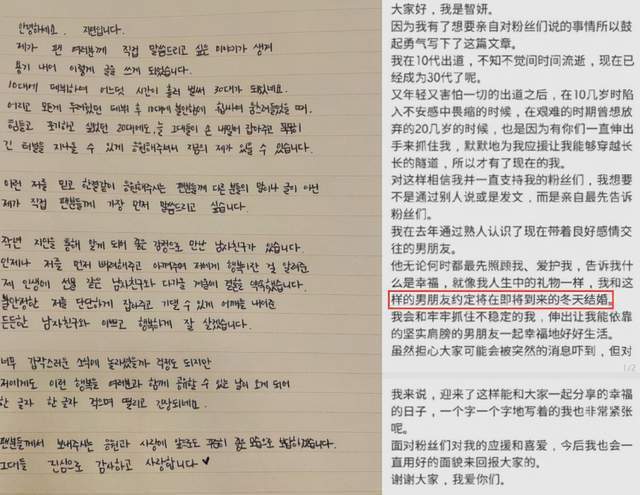 안녕하세요. 지연입니다.
제가 팬 여러분께 직접 말씀드리고 싶은 이야기가 생겨
용기 내어 이렇게 글을 쓰게 되었습니다.
10대에 데뷔하여 어느덧 시간이 흘러 벌써 30대가 됐네요.
어리고 모든게 두려웠던 데뷔 후 10대에 불안함에 휩싸여 움츠려들었을 때,
힘들고 포기하고 싶었던 20대에도, 늘 그대들이 손 내밀어 잡아주고 묵묵히
긴 터널을 지나올 수 있게 응원해주셔서 지금의 제가 있을 수 있습니다.
이런 저를 믿고 한결같이 응원해주시는 팬분들께 다른 분들의 말이나 글이 아닌
제가 직접 팬분들께 가장 먼저 말씀드리고 싶습니다.
작년 지인을 통해 알게 되어 좋은 감정으로 만난 남자친구가 있습니다.
언제나 저를 먼저 배려해주고 아껴주며 저에게 행복이란 걸 알려준
제 인생에 선물 같은 남자친구와 다가올 겨울에 결혼을 약속했습니다.
불안정한 저를 단단하게 잡아주고 기댈 수 있게 어깨를 내어준
든든한 남자친구와 이쁘고 행복하게 잘 살겠습니다.
너무 갑작스러운 소식에 놀라셨을까 걱정도 되지만
저에게도 이런 행복을 여러분과 함께 공유할 수 있는 날이 오게 되어
한 글자 한 글자 적으며 떨리고 긴장되네요.
팬분들께서 보내주시는 응원과 사랑에 앞으로도 꾸준히 좋은 모습으로 보답하겠습니다.
그대들 진심으로 감사하고 사랑합니다♥
大家好，我是智妍。
因为我有了想要亲自对粉丝们说的事情所以鼓
起勇气写下了这篇文章。
我在10代出道，不知不觉间时间流逝，现在已
经成为30代了呢。
又年轻又害怕一切的出道之后，在10几岁时陷
入不安感中畏缩的时候，在艰难的时期曾想放
弃的20几岁的时候，也是因为有你们一直伸出
手来抓住我，默默地为我应援让我能够穿越长
长的隧道，所以才有了现在的我。
对这样相信我并一直支持我的粉丝们，我想要
不是通过别人说或是发文，而是亲自最先告诉
粉丝们。
我在去年通过熟人认识了现在带着良好感情交
往的男朋友。
他无论何时都最先照顾我、爱护我，告诉我什
么是幸福，就像我人生中的礼物一样，我和这
样的男朋友约定将在即将到来的冬天结婚。
我会和牢牢抓住不稳定的我，伸出让我能依靠
的坚实肩膀的男朋友一起幸福地好好生活。
虽然担心大家可能会被突然的消息吓到，但对
1/2
我来说，迎来了这样能和大家一起分享的幸福
的日子，一个字一个字地写着的我也非常紧张
呢。
面对粉丝们对我的应援和喜爱，今后我也会一
直用好的面貌来回报大家的。
谢谢大家，我爱你们。